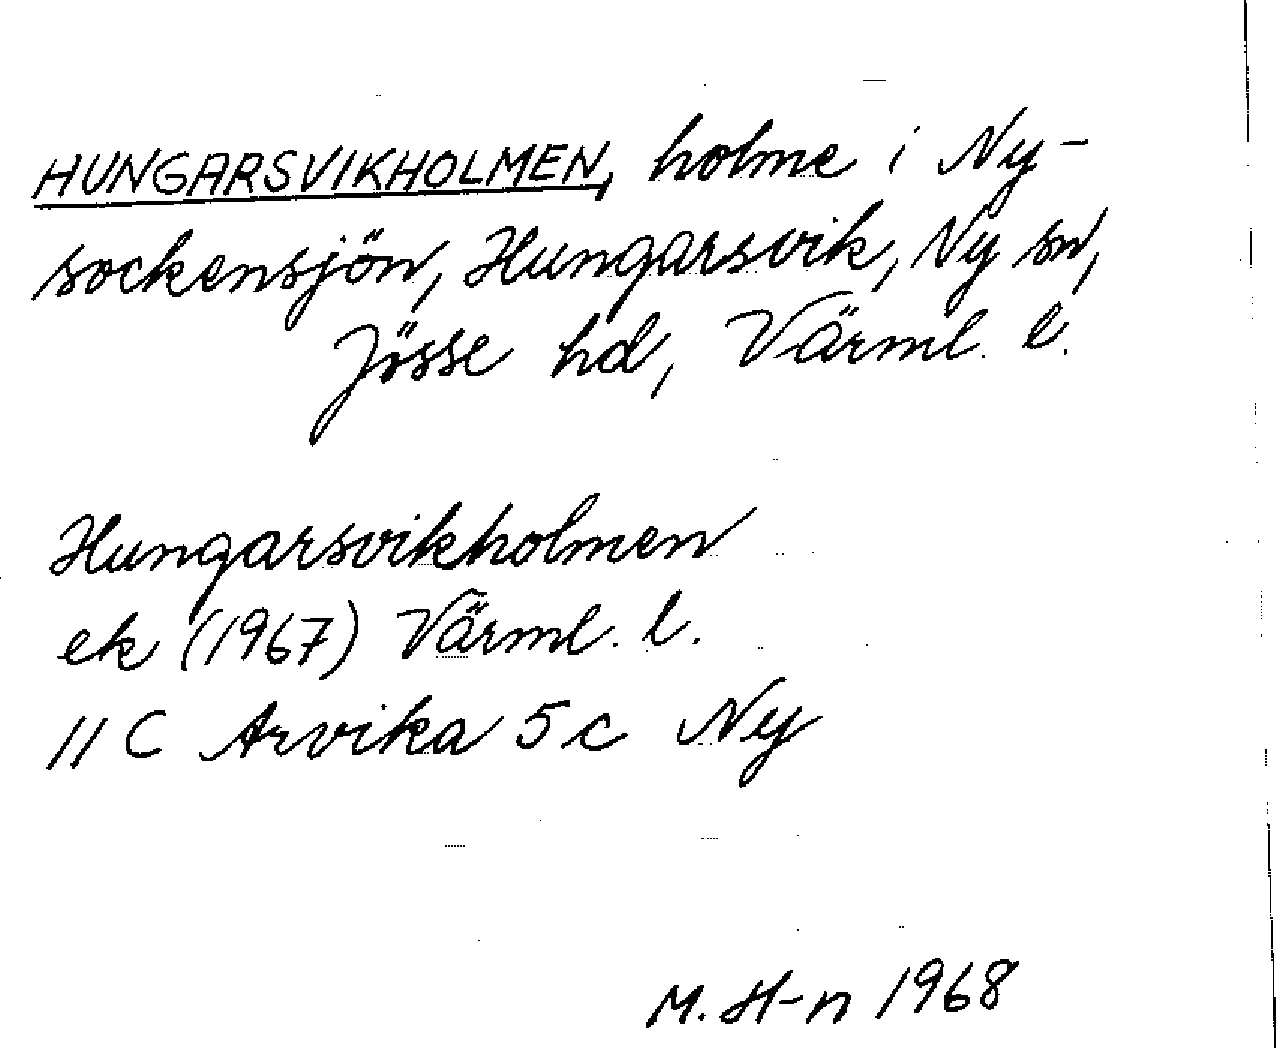 HUNGARSVIKHOLMEN, holme i Ny-
sockensjön, Hungarsvik, Ny sn,
Jösse hd, Värml. l.
Hungarsvikholmen
ek (1967) Värml. l.
11 C Arvika 5 c Ny
M. H-n 1968